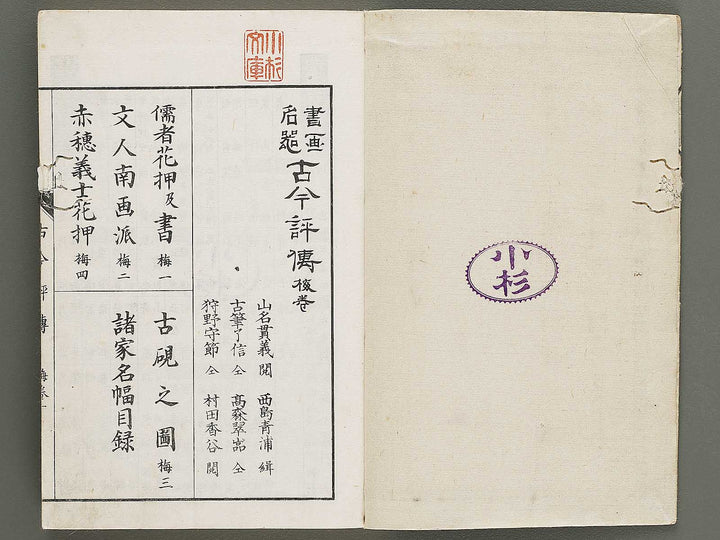 小杉
小杉
文庫
書画
名器
古今評傳 後卷
山名貫義 閲 西島青浦 緝
古筆了信 仝 髙森翠嵓 仝
狩野守節 仝 村田香谷 閲
儒者花押及書 梅一
文人南画派 梅二
赤穗義士花押 梅四
古硯之圖 梅三
諸家名幅目録
古今評傳